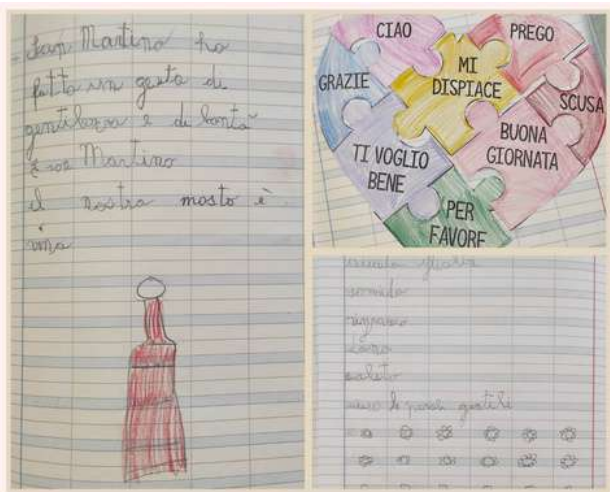 San Martino ha
fatto un gesto di
gentilezza e di bontà
Martino
il nostro mosto è
vino
CIAO
PREGO
GRAZIE
MI
DISPIACE
SCUSA
BUONA
GIORNATA
TI VOGLIO
BENE
PER
FAVORE
saluto
uso le parole gentili